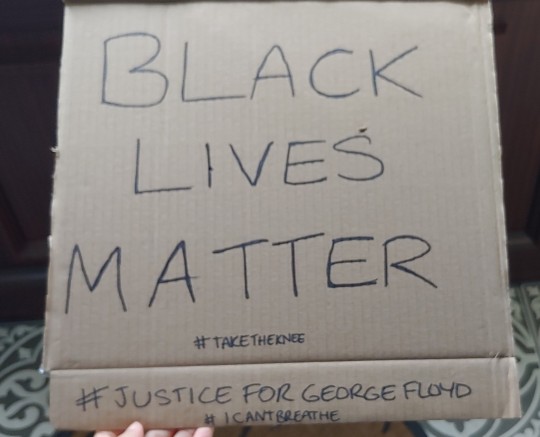 BLACK
LIVES
MATTER
# TAKETHEKNEE
# JUSTICE FOR GEORGE FLOYD
# ICANTBREATHE